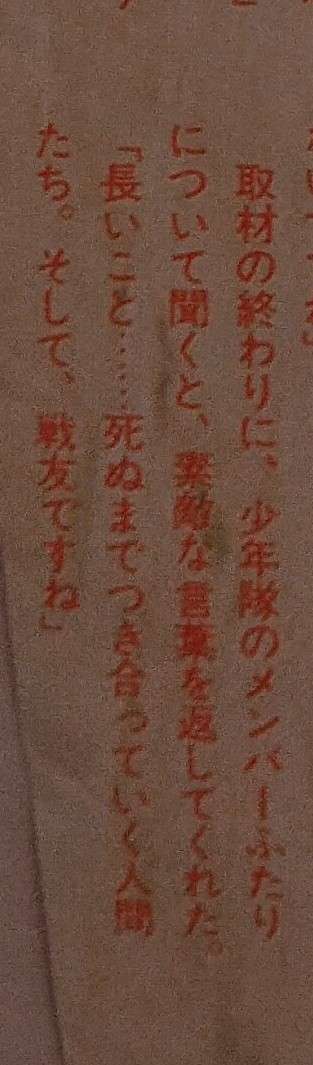 取材の終わりに、少年隊のメンバーふたり
について聞くと、素敵な言葉を返してくれた。
「長いこと……死ぬまでつき合っていく人間
たち。そして、戦友ですね」